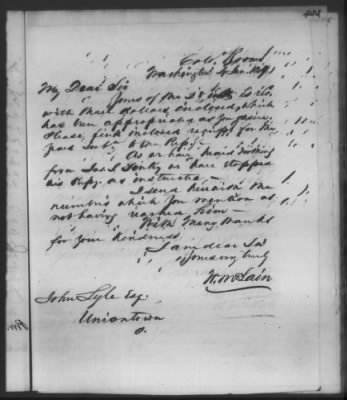 Col. Rooms
Washington
My Dear Sir
Yours of the is
with three dollars enclosed, which
has been appropriated as you desire.
Please find enclosed receipt for the
paid to the Repy.
As we have heard nothing
from we have stopped
his Repy. as instructed.
I send herewith the
numbers which you mention as
not having reached him
With many thanks
for your kindness
I am dear Sir
Yours very truly
W. McLain
John Lyle Esq.
Uniontown
O.